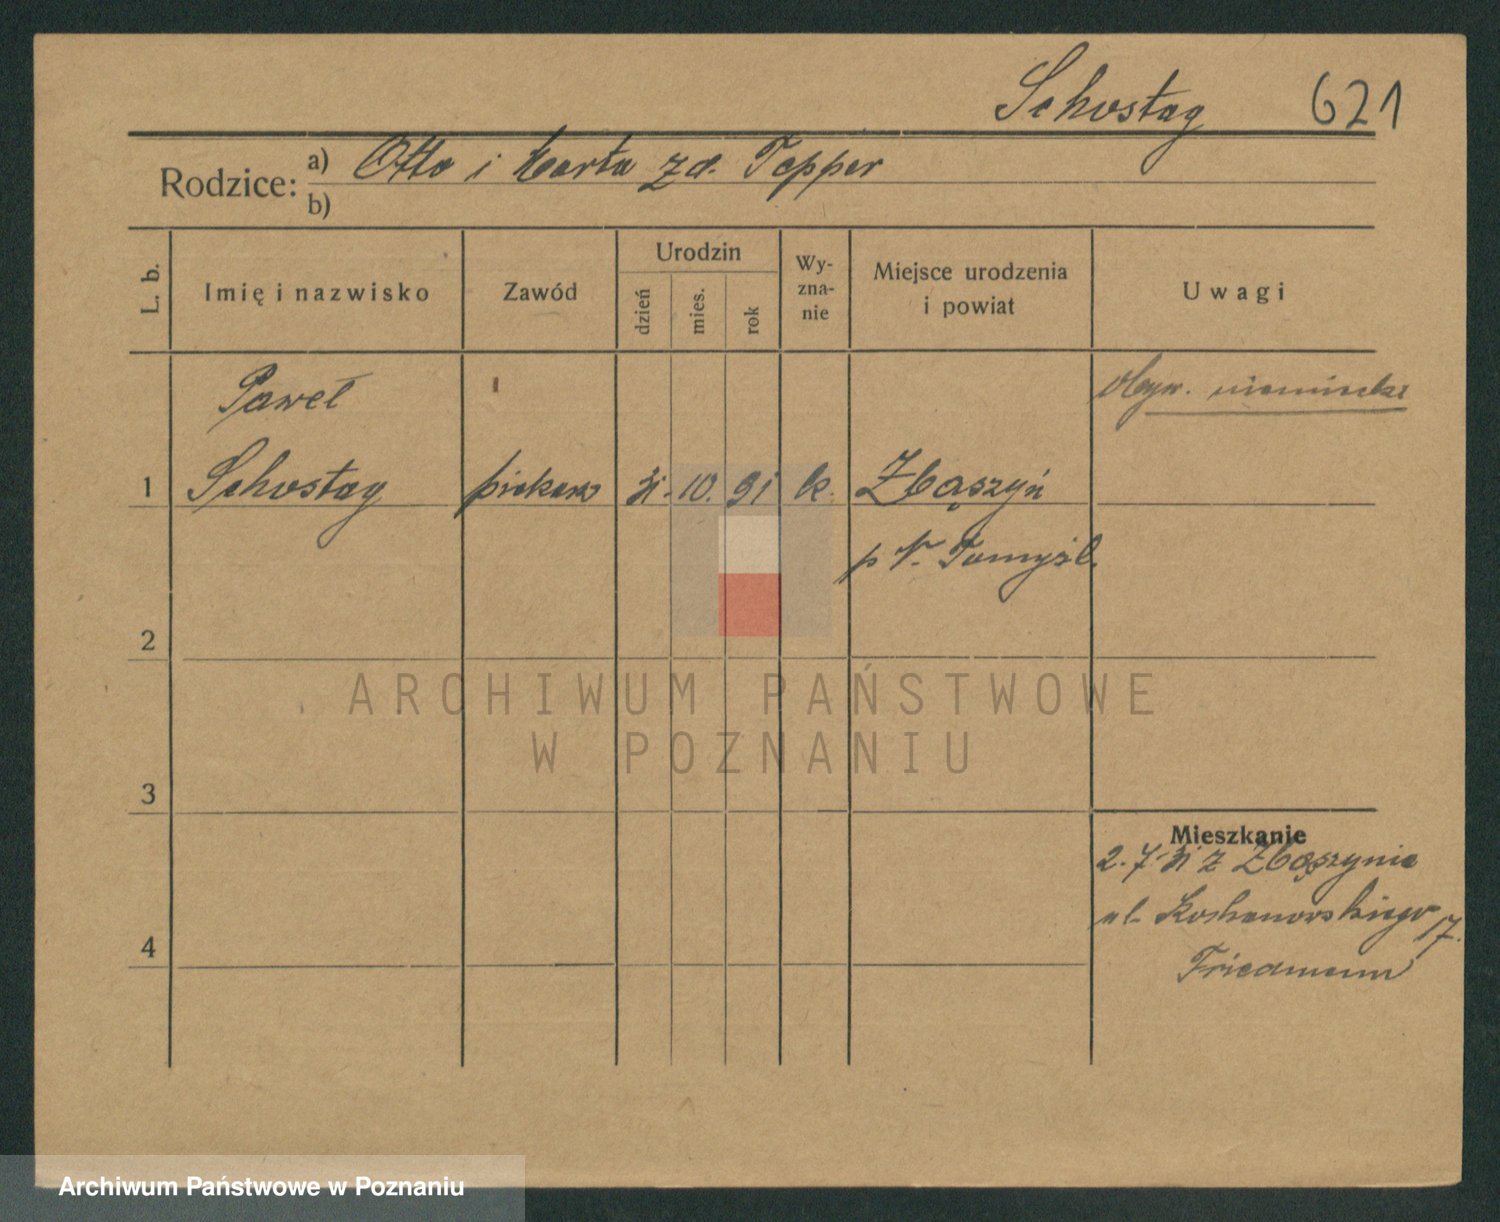 Schostag 621
Rodzice: a) Otto i Marta zd. Tepper
b)
L. b. Imię i nazwisko Zawód Urodzin dzień mies. rok Wyznanie Miejsce urodzenia i powiat Uwagi
Paweł obyw. niemiecki
1 Schostag piekarz 31. 10. 91 Zbąszyń
p N. Tomyśl.
2
ARCHIWUM PAŃSTWOWE
W POZNANIU
3
Mieszkanie
2. 7. 31 z Zbąszynia
ul. Kochanowskiego 17.
4
Friedmann
Archiwum Państwowe w Poznaniu